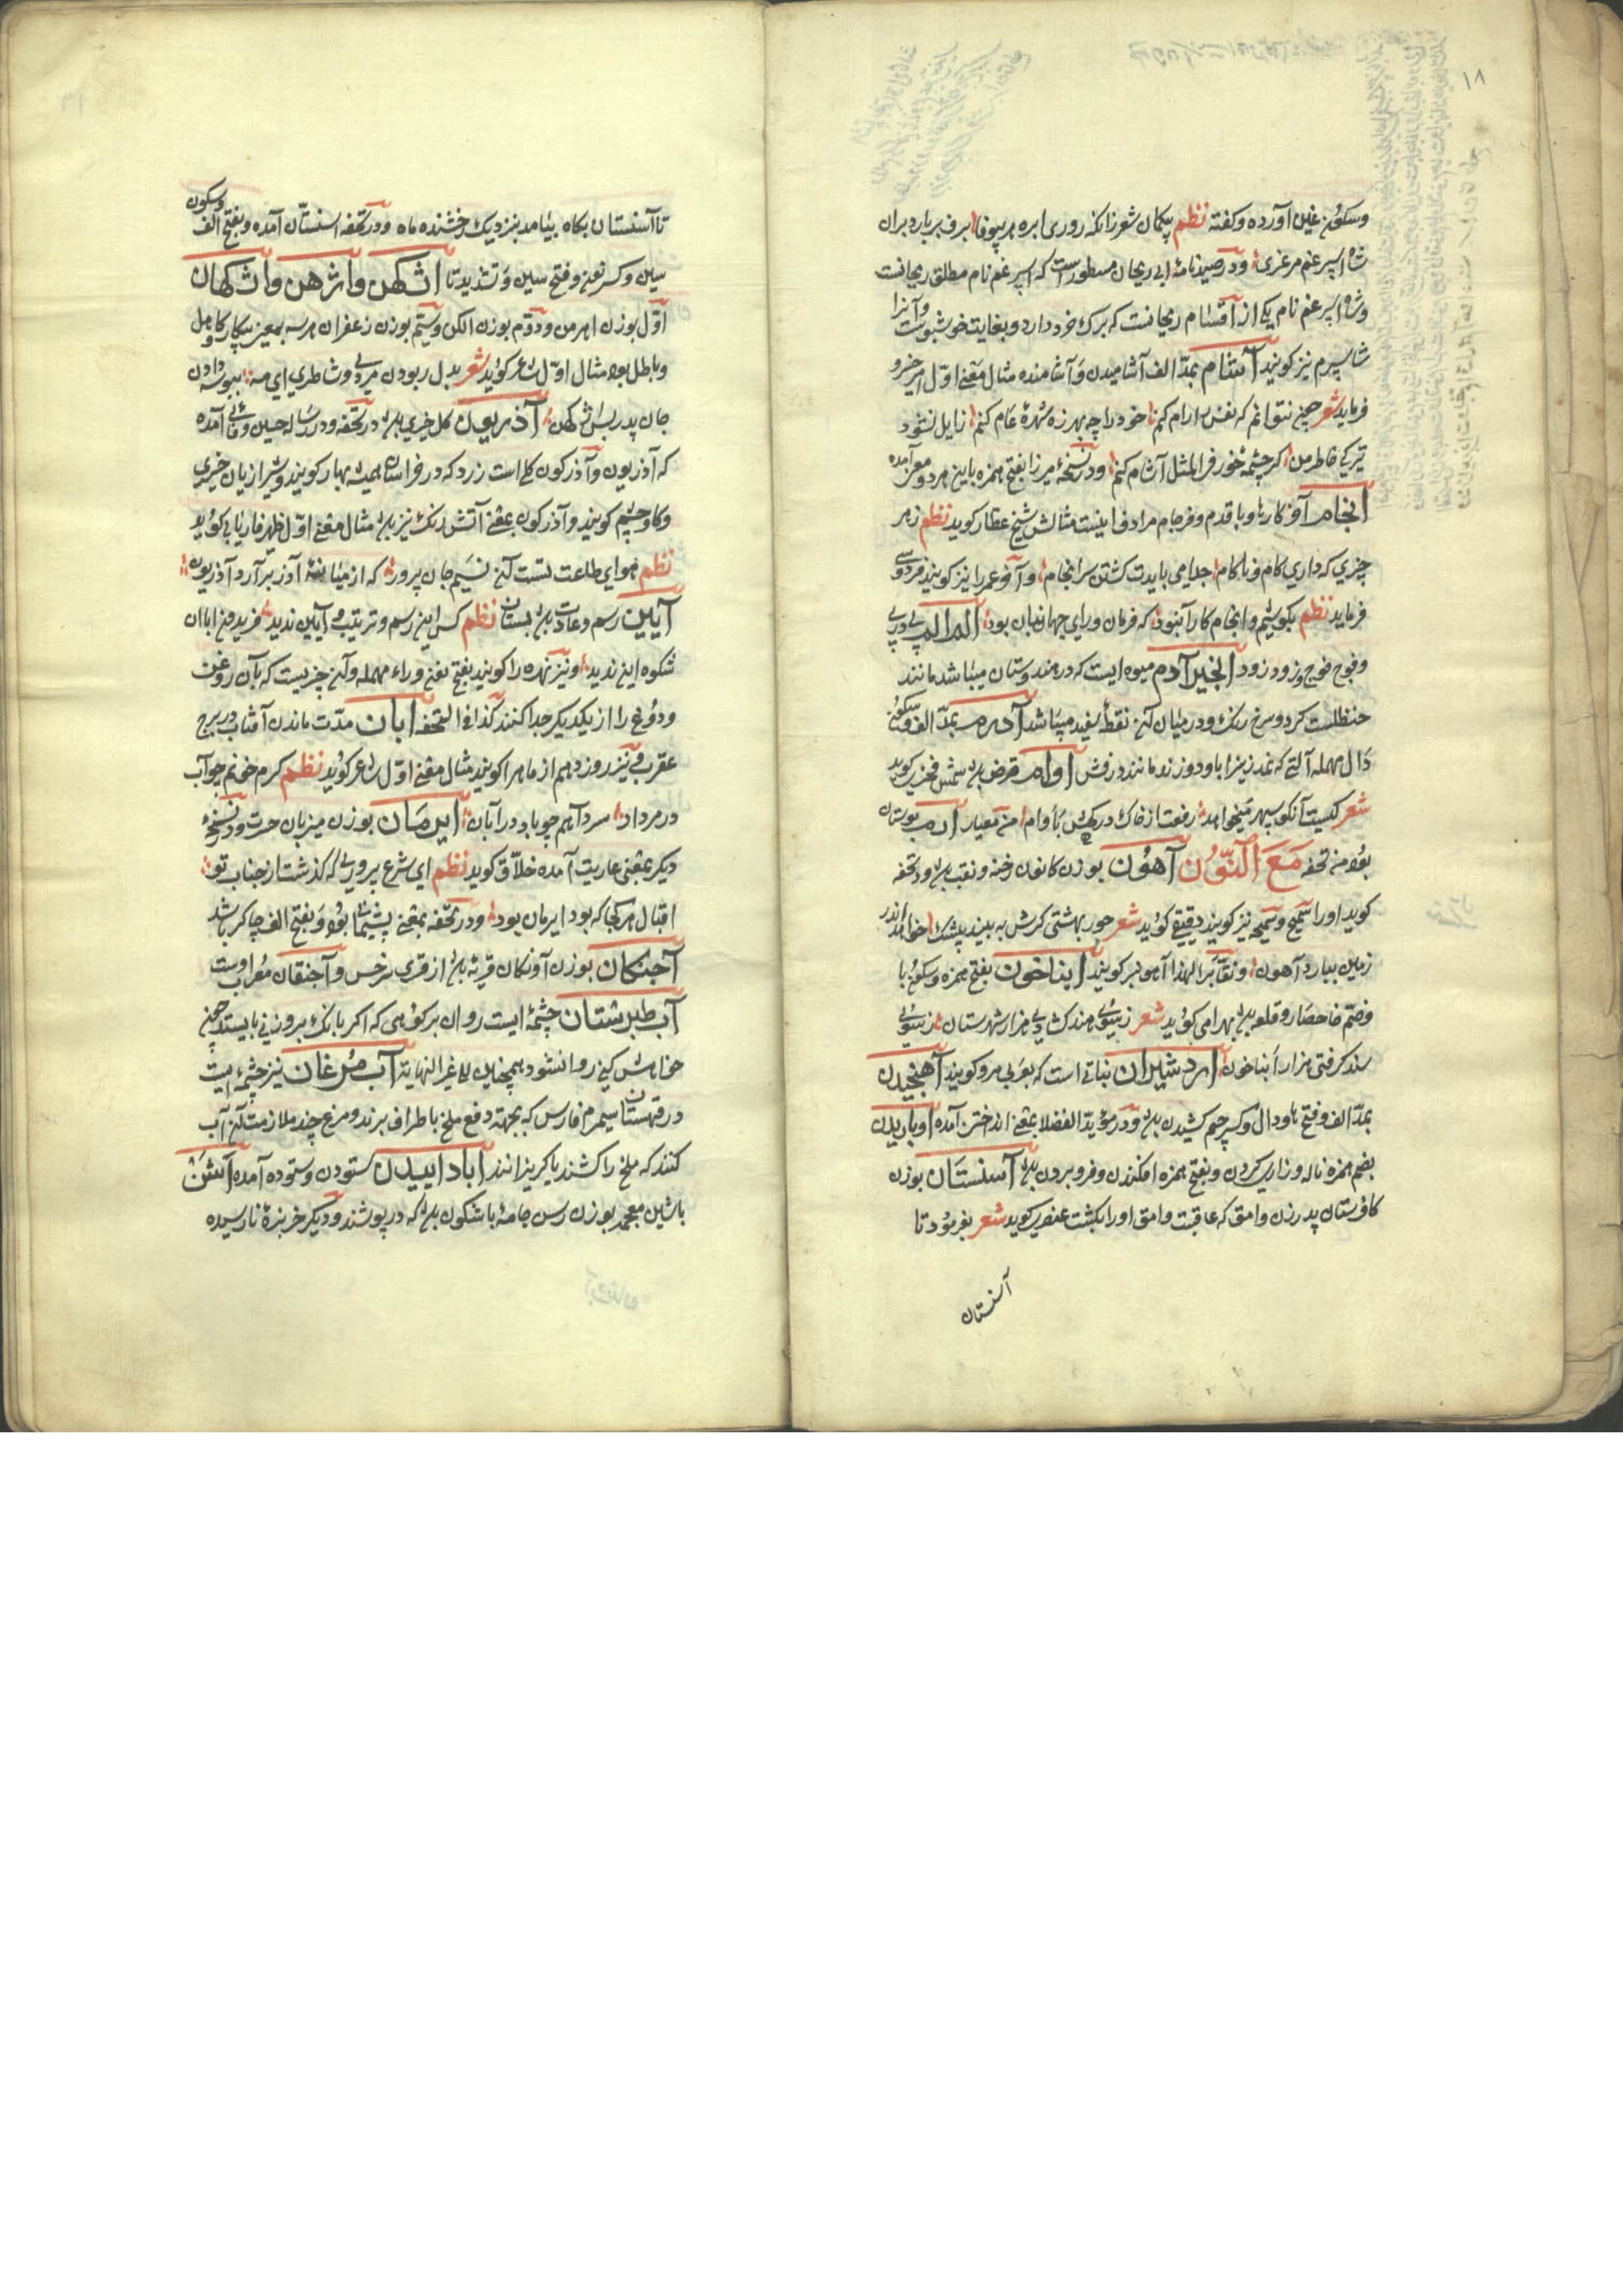 ۱۸
وسکون غین آورده و گفته نظم پیکمان شعر زانکه روری ابره هر بیوفا برف بر بارد بران
شاه اسپرغم مرغزی ودر صیدنامهٔ ابی ریحان مسطور است که اسپرغم نام مطلق ریحانست
وشاه اسپرغم نام یکی از اقسام ریحانست که برک خرد دارد و بغایت خوشبوست و آنرا
شاسپرم نیز کویند آشام بمدّ الف آشامیدن و آشامنده مثال معنی اول امیر خسرو
فرماید شعر چنین نتوانم که نفس را رام کنم خود را چه بهرزه شهرهٔ عام کنم زایل نشود
تیرکی خاطر من کر چشمهٔ خور فی المثل آشام کنم ودر نسخهٔ میرزا بفتح همزه باین هر دو معنی آمده
انجام آخر کارها و باقدم وفرجام مرادف اینست مثالش شیخ عطار کوید نظم زهر
چیزی که داری کام و ناکام جدا می بایدت کشتن سرانجام و آخر عمر را نیز کویند فردوسی
فرماید نظم بکوشیم و انجام کار آن بود که فرمان و رای جهانبان بود الم الم پی در پی
وفوج فوج وزود زود انجیر آدم میوه ایست که در هندوستان میباشد مانند
حنظلست کرد و سرخ رنک ودر میان آن نقطهٔ سفید میباشد آدرم بمدّ الف وسکون
دال مهمله آلتی که نمد زین را با و دوزند مانند درفش اوام قرض باشد شمس فخری کوید
شعر کیست آنکو سپهر میخواهد رفعت از خاک درکهش باوام من معیار ارم بوستان
بود من تحفه مَعَ النّون آهون بوزن کانون رخنه و نقب باشد ودر تحفه
کوید اورا سمج وسمجه نیز کویند دقیقی کوید شعر حور بهشتی کرش به بیند بیشک خواهد اندر
زمین بیارد آهون ونقّاب را لهذا آهونبر کویند ابناخون بفتح همزه وسکون با
وضمّ خا حصار وقلعه باشد بهرامی کوید شعر ز سوی هند کشادی هزار شهرستان ز سوی
سند کرفتی هزار ابناخون اردشیران نباتی است که بعربی مرو کویند آهنجیدن
بمدّ الف وفتح ها ودال وکسر جیم کشیدن باشد ودر مؤید الفضلا بمعنی انداختن آمده اوباریدن
بضم همزه ناله وزاری کردن وبفتح همزه افکندن وفرو بردن باشد آسنستان بوزن
کافرستان پدر زن وامق که عاقبت وامق اورا بکشت عنصری کوید شعر بفرمود تا
آسنستان
تا آسنستان بکاه بیامد بنزدیک رخشنده ماه ودر تحفه اسنستان آمده وبفتح الف وسکون
سین وکسر نون وفتح سین وتشدید تا اثکهن واژهن واثکهان
اوّل بوزن اهرمن ودوّم بوزن الکن وسیّم بوزن زعفران هر سه بمعنی بیکار وکاهل
وباطل بود مثال اوّل شاعر کوید شعر بدل ربودن مردی وشاطری ای مه ببوسه دادن
جان پدر بس اثکهن آذریون کل خیری باشد در تحفه ودر رساله حسین وفائی آمده
که آذریون وآذرکون کلی است زرد که در خراسان همیشه بهار کویند وشیرازیان خیری
وکاوچشم کویند وآذرکون بمعنی آتش رنک نیز باشد مثال معنی اوّل ظهیر فاریابی کوید
نظم هوای طلعت تست آن نسیم جان پرور که از میانهٔ آذر برآرد آذریون
آیین رسم وعادت باشد بستان نظم کس این رسم وترتیب و آیین ندید فریدون ابا آن
شکوه این ندید ونیز نهره را کویند بفتح نون وراء مهمله وآن چیزیست که بآن روغن
ودوغ را از یکدیکر جدا کنند کذا فی التحفه ابان مدّت ماندن آفتاب در برج
عقرب ونیز روز دهم از ماه را کویند مثال معنی اوّل شاعر کوید نظم کرم خونم چو آب
در مرداد سرد آهم چو باد در آبان ایرمان بوزن میزبان حسرت ودر نسخهٔ
دیکر بمعنی عاریت آمده خلاّق کوید نظم ای شرع پروری که کذشت از جناب تو
اقبال هر کجا که بود ایرمان بود ودر تحفه بمعنی پشیمانی بود وبفتح الف چاکر باشد
آجنکان بوزن آونکان قریه باشد از قری سرخس وآجنقان معرّب اوست
آب طبرستان چشمهٔ ایست روان بر کوهی که اکر بانک برو زنی بایستد چون
خوامش کنی روان شود همچنین الی غیر النهایة آب مرغان نیز چشمهٔ ایست
در قهستان سیمرم فارس که بجهتهٔ دفع ملخ باطراف برند ومرغ چند ملازمت آن آب
کنند که ملخ را کشند یا کریزانند اباداییدن ستودن وستوده آمده اشن
باشین معجمه بوزن رسن جامهٔ باشکون باشد که در پوشند ودیکر خربزهٔ نارسیده